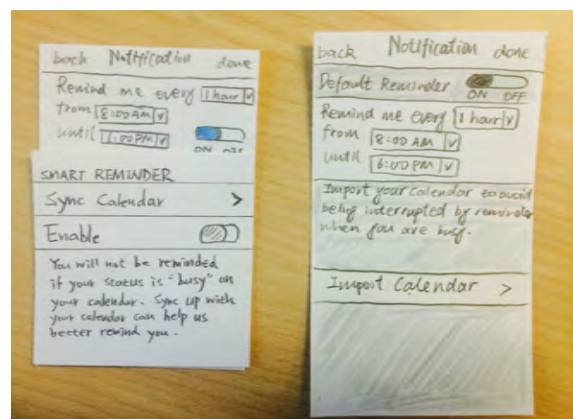 back Notification done
Remind me every 1 hour v
from 8:00 AM v
until 6:00 PM v
ON
SMART REMINDER
Sync Calendar >
Enable
You will not be reminded
if your status is "busy" on
your calendar. Sync up with
your calendar can help us
better remind you.
back Notification done
Default Reminder
ON OFF
Remind me every 1 hour v
from 8:00 AM v
until 6:00 PM v
Import your calendar to avoid
being interrupted by reminder
when you are busy.
Import Calendar >